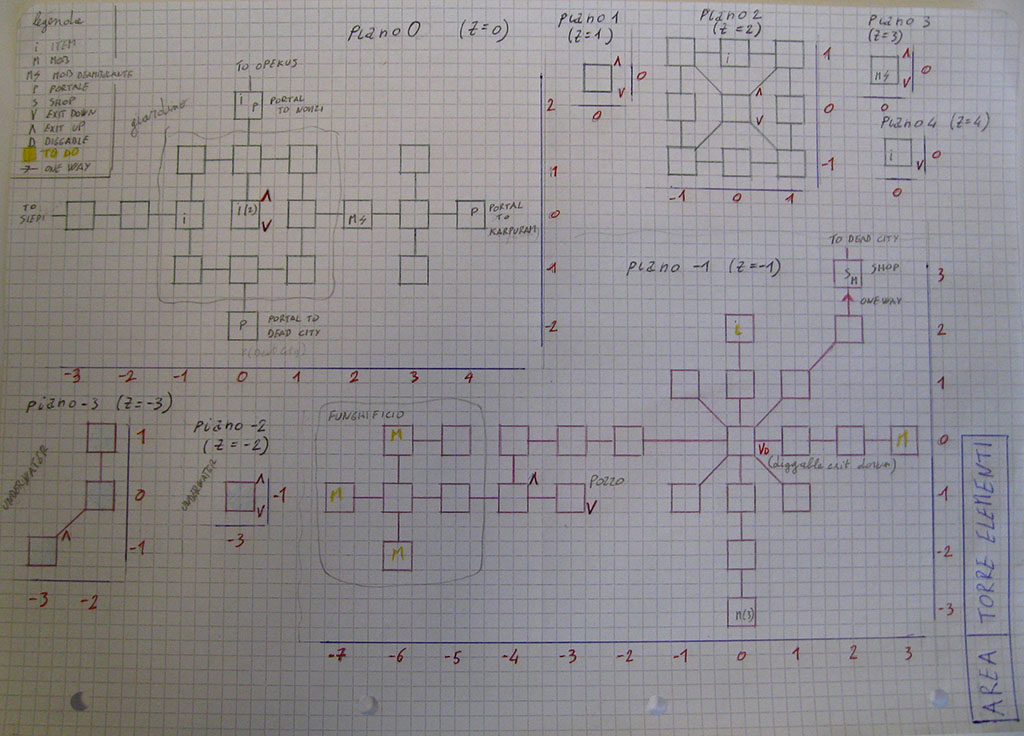 legenda
i ITEM
M MOB
M↯ MOB DEAMBULANTE
P PORTALE
S SHOP
V EXIT DOWN
Λ EXIT UP
D DIGGABLE
TO DO
ONE WAY
Piano 0 (Z=0)
TO OPEKUS
i P
PORTAL
giardino
i
I(2)
Λ
V
TO
M↯
P
PORTAL
TO
KARPURAM
P
PORTAL TO
DEAD CITY
2
1
0
-1
-2
-3 -2 -1 0 1 2 3 4
Piano 1
(Z=1)
Λ
V
0
0
Piano 2
(Z=2)
i
Λ
V
1
0
-1
-1 0 1
Piano 3
(Z=3)
M↯
Λ
V
0
0
Piano 4 (Z=4)
i
V
0
0
Piano -1 (Z=-1)
TO DEAD CITY
S M
SHOP
ONE WAY
i
M
VD
(diggable exit down)
M(3)
FUNGHIFICIO
M
M
M
Λ
POZZO
V
3
2
1
0
-1
-2
-3
-7 -6 -5 -4 -3 -2 -1 0 1 2 3
Piano -2
(Z=-2)
UNDERWATER
Λ
V
-1
-3
Piano -3 (Z=-3)
UNDERWATER
Λ
1
0
-1
-3 -2
AREA TORRE ELEMENTI